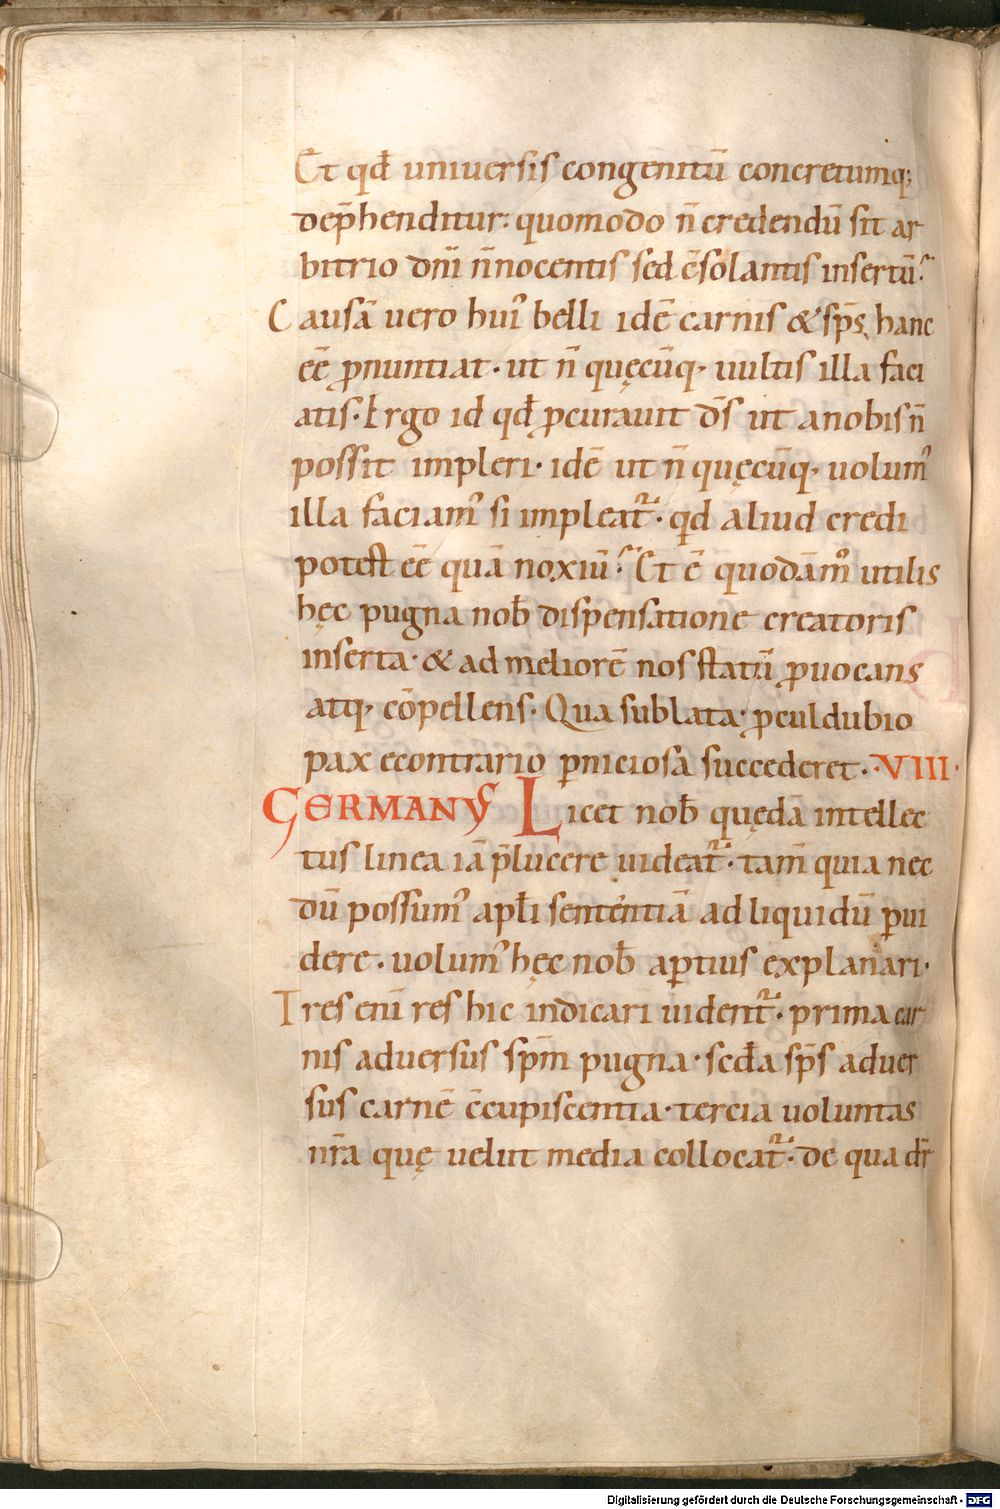 Et qđ uniuersis congenitū concretumq;
dep̄henditur: quomodo n̄ credendū sit ar
bitrio dn̄i n̄nocentis sed c̄solantis insertū?
Causā uero hui᾽ belli idē carnis & sp̄s, hanc
eē ꝓnuntiat. ut n̄ quęcūq, uultis illa faci
atis. Ergo id qđ ꝓcurauit d̄s ut a nobis n̄
possit impleri. idē ut n̄ quęcūq, uolum᾽
illa faciam᾽ si impleat᷑. qd aliud credi
potest eē quā noxiū? Et ē quodām̊ utilis
hęc pugna nob̄ dispensatione creatoris
inserta. & ad meliorē nos statū ꝓuocans
atq, cōpellens. Qua sublata. ꝓculdubio
pax econtrario ꝑniciosa succederet. VIII.
GERMANUS Licet nob̄ quędā intellec
tus linea iā p̄lucere uideat᷑. tam̄ quia nec
dū possum᾽ apłi sententiā ad liquidū ꝑui
dere. uolum᾽ hęc nob̄ aꝑtius explanari.
Tres eni᷑ res hic indicari uident᷑. prima car
nis aduersus sp̄m pugna. secđa sp̄s aduer
sus carnē c̄cupiscentia. tercia uoluntas
nr̄a quę uelut media collocat᷑. de qua dr̄
Digitalisierung gefördert durch die Deutsche Forschungsgemeinschaft - DFG